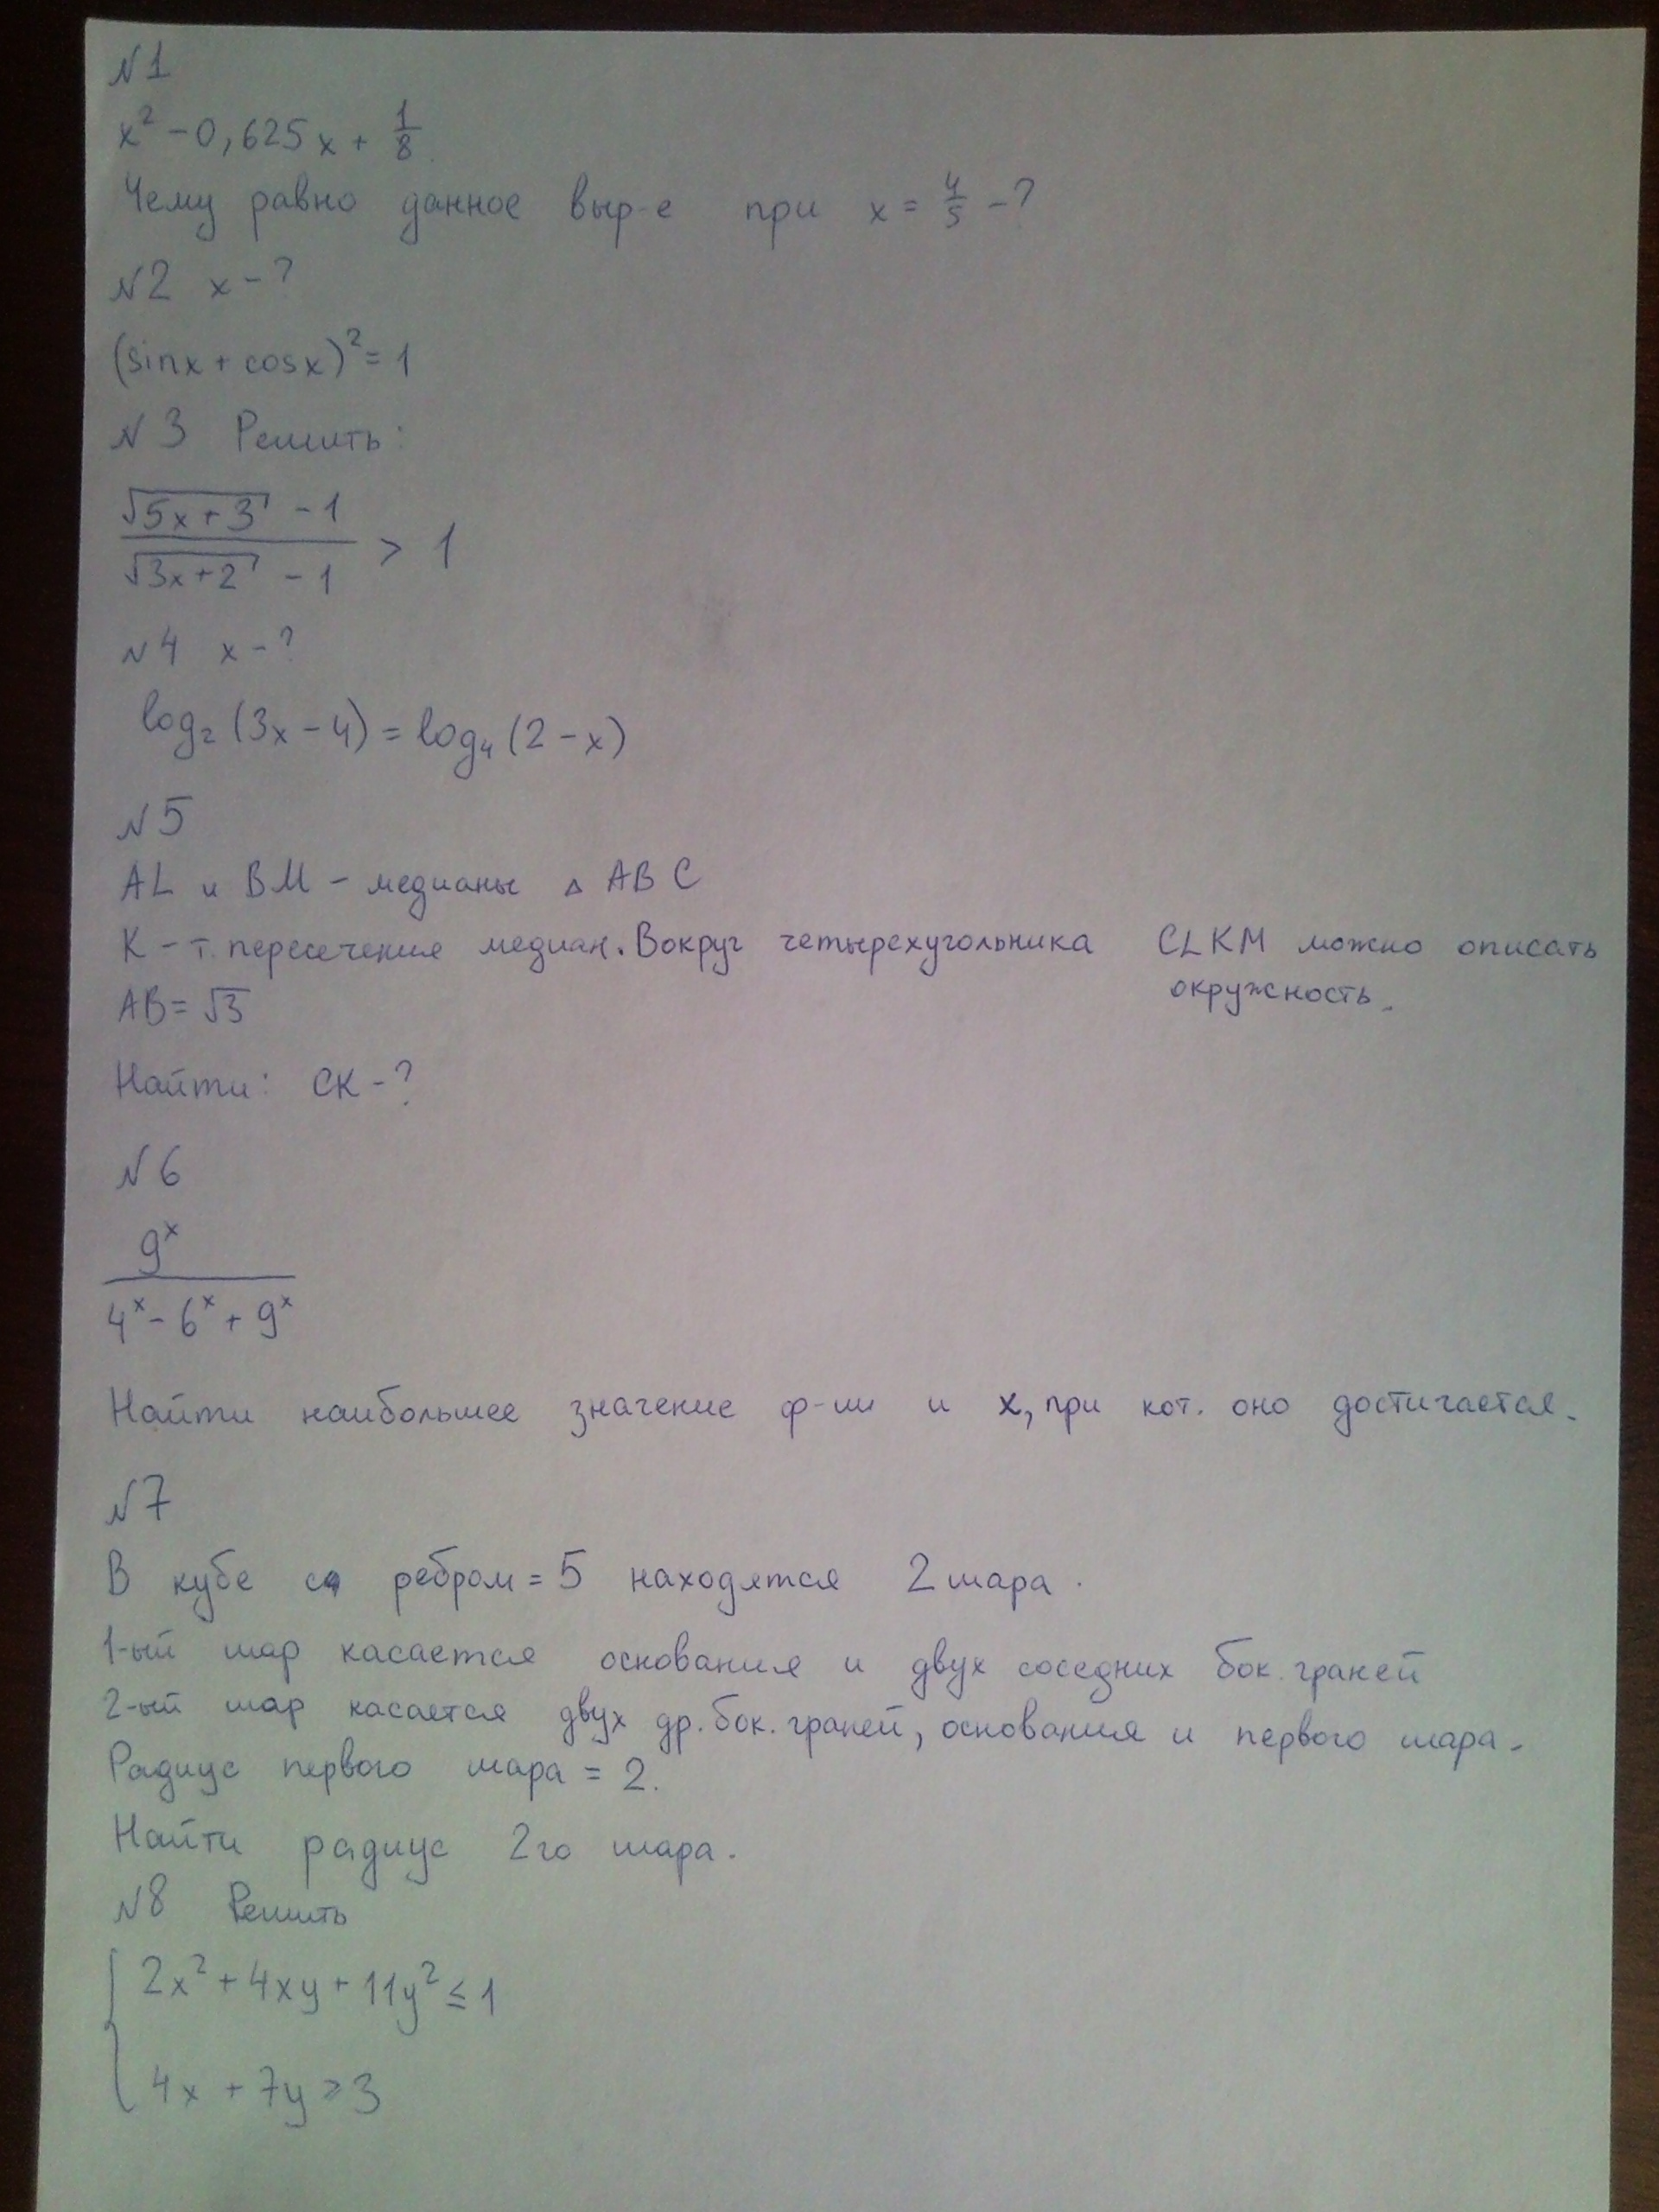 №1
x² - 0,625x + 1/8
Чему равно данное выр-е при x = 4/5 - ?
№2 x - ?
(sinx + cosx)² = 1
№3 Решить:
(√(5x+3) - 1)/(√(3x+2) - 1) > 1
№4 x - ?
log₂(3x-4) = log₄(2-x)
№5
AL и BM - медианы △ ABC
K - т. пересечения медиан. Вокруг четырехугольника CLKM можно описать
окружность.
AB = √3
Найти: CK - ?
№6
9ˣ/(4ˣ - 6ˣ + 9ˣ)
Найти наибольшее значение ф-ии и x, при кот. оно достигается.
№7
В кубе с ребром = 5 находятся 2 шара.
1-ый шар касается основания и двух соседних бок. граней
2-ый шар касается двух др. бок. граней, основания и первого шара.
Радиус первого шара = 2.
Найти радиус 2го шара.
№8 Решить
{ 2x² + 4xy + 11y² ≤ 1
4x + 7y ≥ 3